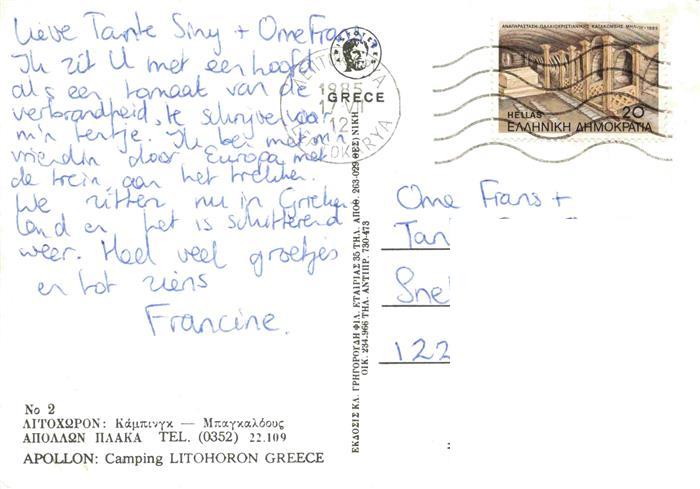 Lieve Tante Siny + Ome Frans
Ik zit U met een hoofd
als een tomaat van de
verbrandheid, te schrijven voor
m'n tentje. Ik ben met m'n
vriendin door Europa met
de trein aan het trekken.
We zitten nu in Grieken
land en het is schitterend
weer. Heel veel groetjes
en tot ziens
Francine.
ΑΡΙΣΤΟΤΕΛΗΣ
GREECE
1985
12
ΑΝΑΠΑΡΑΣΤΑΣΗ ΠΑΛΑΙΟΧΡΙΣΤΙΑΝΙΚΗΣ ΚΑΤΑΚΟΜΒΗΣ ΜΗΛΟΥ 1985
HELLAS 20
ΕΛΛΗΝΙΚΗ ΔΗΜΟΚΡΑΤΙΑ
Ome Frans +
Tan
Sne
122
ΕΚΔΟΣΙΣ ΚΛ. ΓΡΗΓΟΡΟΥΔΗ ΦΙΛ. ΕΤΑΙΡΙΑΣ 35 ΤΗΛ. ΑΠΟΘ. 263-029 ΘΕΣ)ΝΙΚΗ
ΟΙΚ. 234.966 ΤΗΛ. ΑΝΤΙΠΡ. 730-473
No 2
ΛΙΤΟΧΩΡΟΝ: Κάμπινγκ — Μπαγκαλόους
ΑΠΟΛΛΩΝ ΠΛΑΚΑ TEL. (0352) 22.109
APOLLON: Camping LITOHORON GREECE